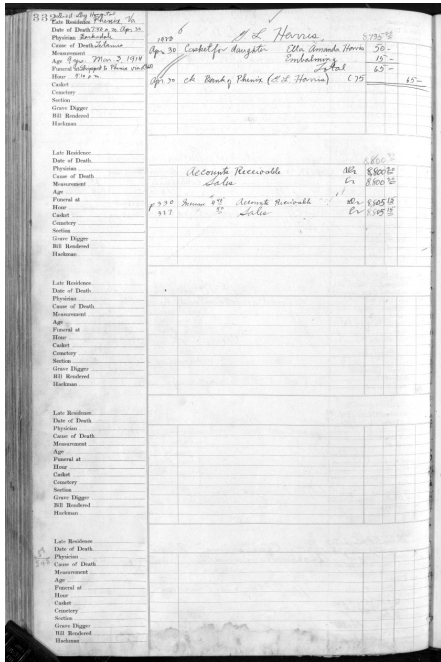 332
Late Residence Phenix, Va
Date of Death 7:30 a.m. Apr. 30
Physician
Cause of Death Tetanus
Measurement
Age 9 yrs. Mar 3, 1914
Funeral at
Hour
Casket
Cemetery
Section
Grave Digger
Bill Rendered
Hackman
L Harris
Apr. 30 Casket for daughter Ella Amanda Harris 50 –
Embalming 15 –
Total 65 –
Apr. 30 ck Bank of Phenix (L Harris) 65 –
Late Residence
Date of Death
Physician
Cause of Death
Measurement
Age
Funeral at
Hour
Casket
Cemetery
Section
Grave Digger
Bill Rendered
Hackman
Accounts Receivable Dr 8,800
Sales Cr 8,800
p 330 Accounts Receivable Dr 8,805
327 Sales Cr 8,805
Late Residence
Date of Death
Physician
Cause of Death
Measurement
Age
Funeral at
Hour
Casket
Cemetery
Section
Grave Digger
Bill Rendered
Hackman
Late Residence
Date of Death
Physician
Cause of Death
Measurement
Age
Funeral at
Hour
Casket
Cemetery
Section
Grave Digger
Bill Rendered
Hackman
Late Residence
Date of Death
Physician
Cause of Death
Measurement
Age
Funeral at
Hour
Casket
Cemetery
Section
Grave Digger
Bill Rendered
Hackman